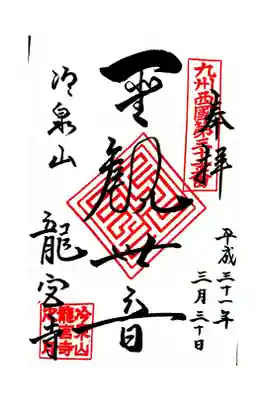 奉拝
九州西国第三十三番
平成三十一年
三月三十日
聖観世音
冷泉山
龍宮寺
冷泉山
龍宮寺